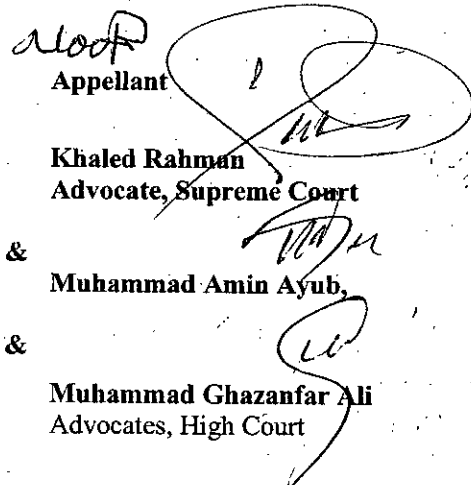 Appellant
Khaled Rahman
Advocate, Supreme Court
&
Muhammad Amin Ayub,
&
Muhammad Ghazanfar Ali
Advocates, High Court